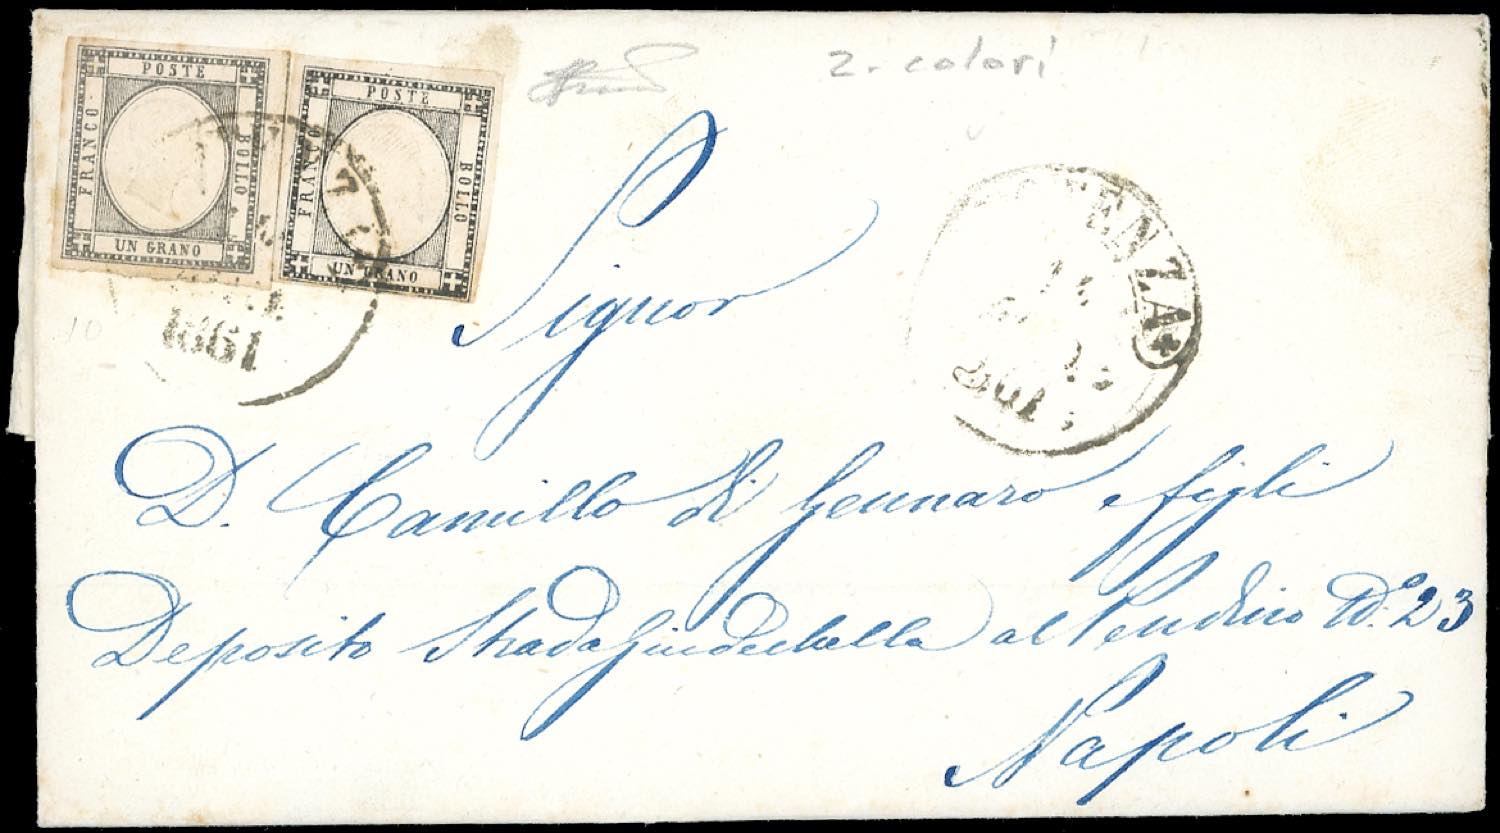 POSTE
FRANCO
BOLLO
UN GRANO
POSTE
FRANCO
BOLLO
UN GRANO
2. colori
1861
10
Signor
D. Camillo di Gennaro e figli
Deposito Strada Giudechella al Pendino N.º 23
Napoli